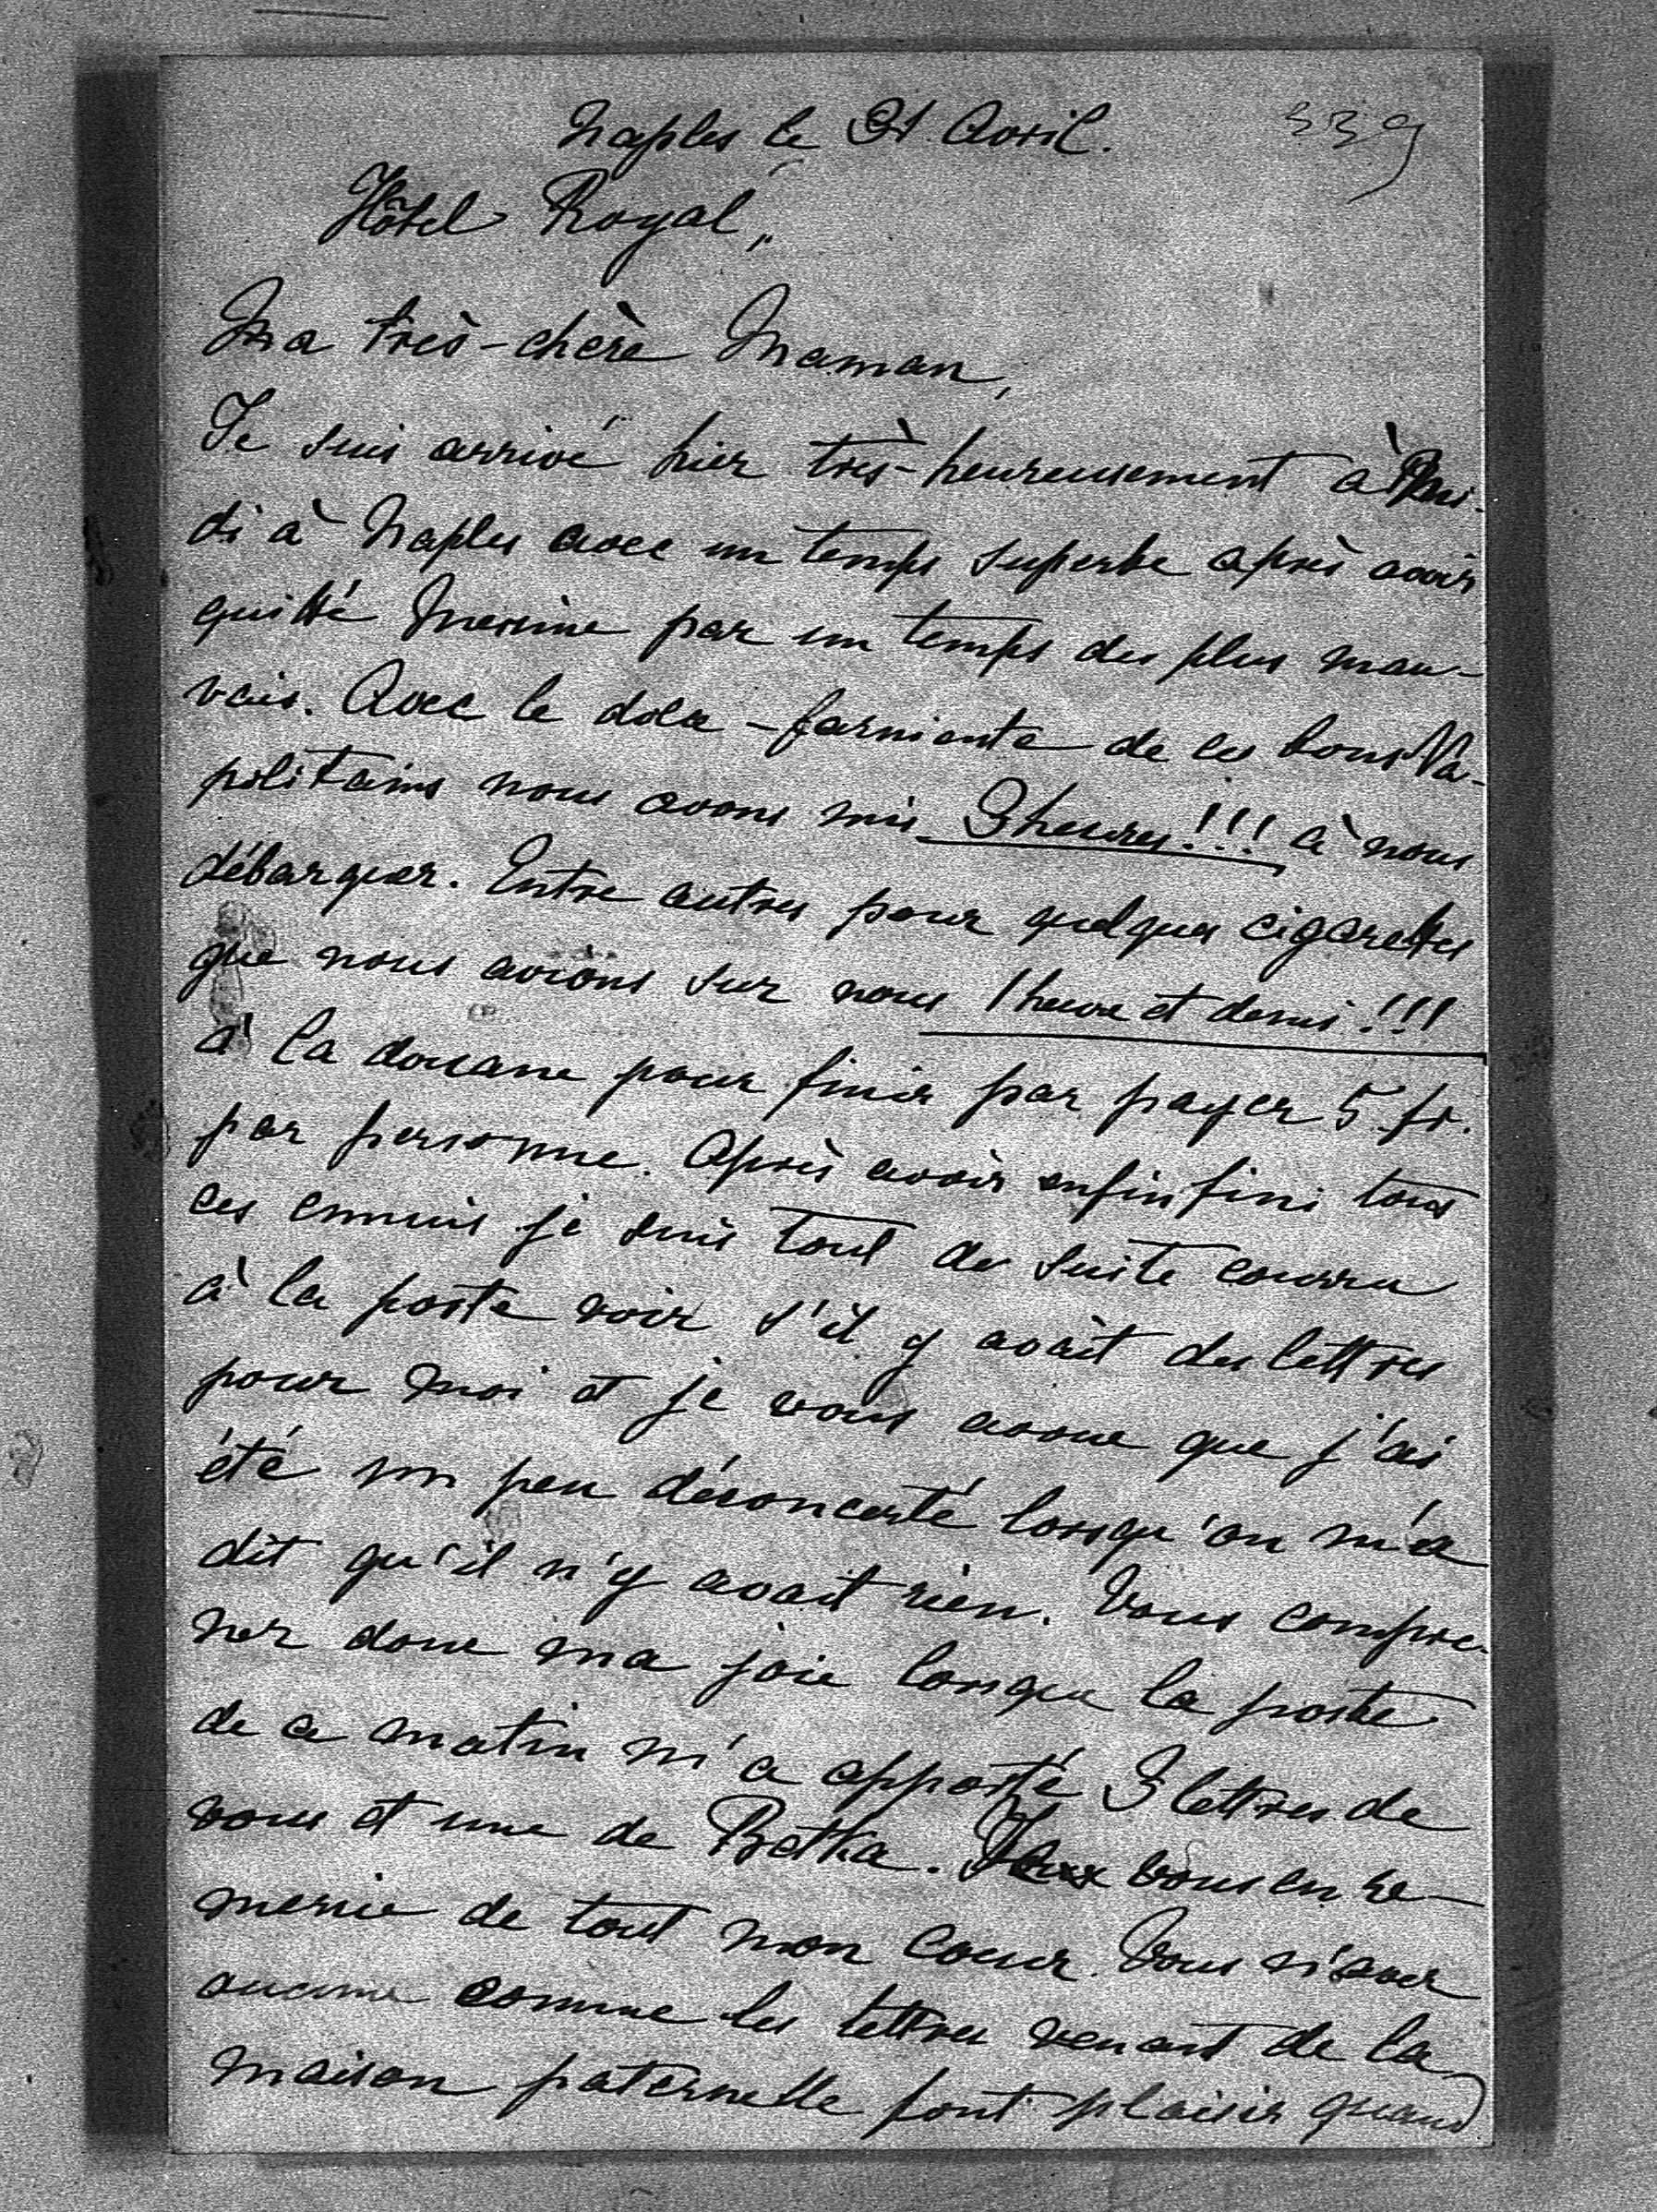 Naples le 21. Avril. 339
Hôtel Royal„
Ma très-chère Maman,
Je suis arrivé hier très-heureusement à Mi-
di à Naples avec un temps superbe après avoir
quitté Messine par un temps des plus mau-
vais. Avec le dolce-farniente de ces bons Na-
politains nous avons mis 3 heures!!! à nous
débarquer. Entre autres pour quelques cigarettes
que nous avions sur nous 1 heure et demi!!!
à la douane pour finir par payer 5 fr.
par personne. Après avoir enfin fini tous
ces ennuis je suis tout de suite courru
à la poste voir s'il y avait des lettres
pour moi et je vous avoue que j'ai
été un peu déconcerté lorsqu'on m'a
dit qu'il n'y avait rien. Vous compre-
nez donc ma joie lorsque la poste
de ce matin m'a apporté 3 lettres de
vous et une de Betka. Je vous en re-
mercie de tout mon coeur. Vous n'avez
aucune comme les lettres venant de la
maison paternelle font plaisir quand